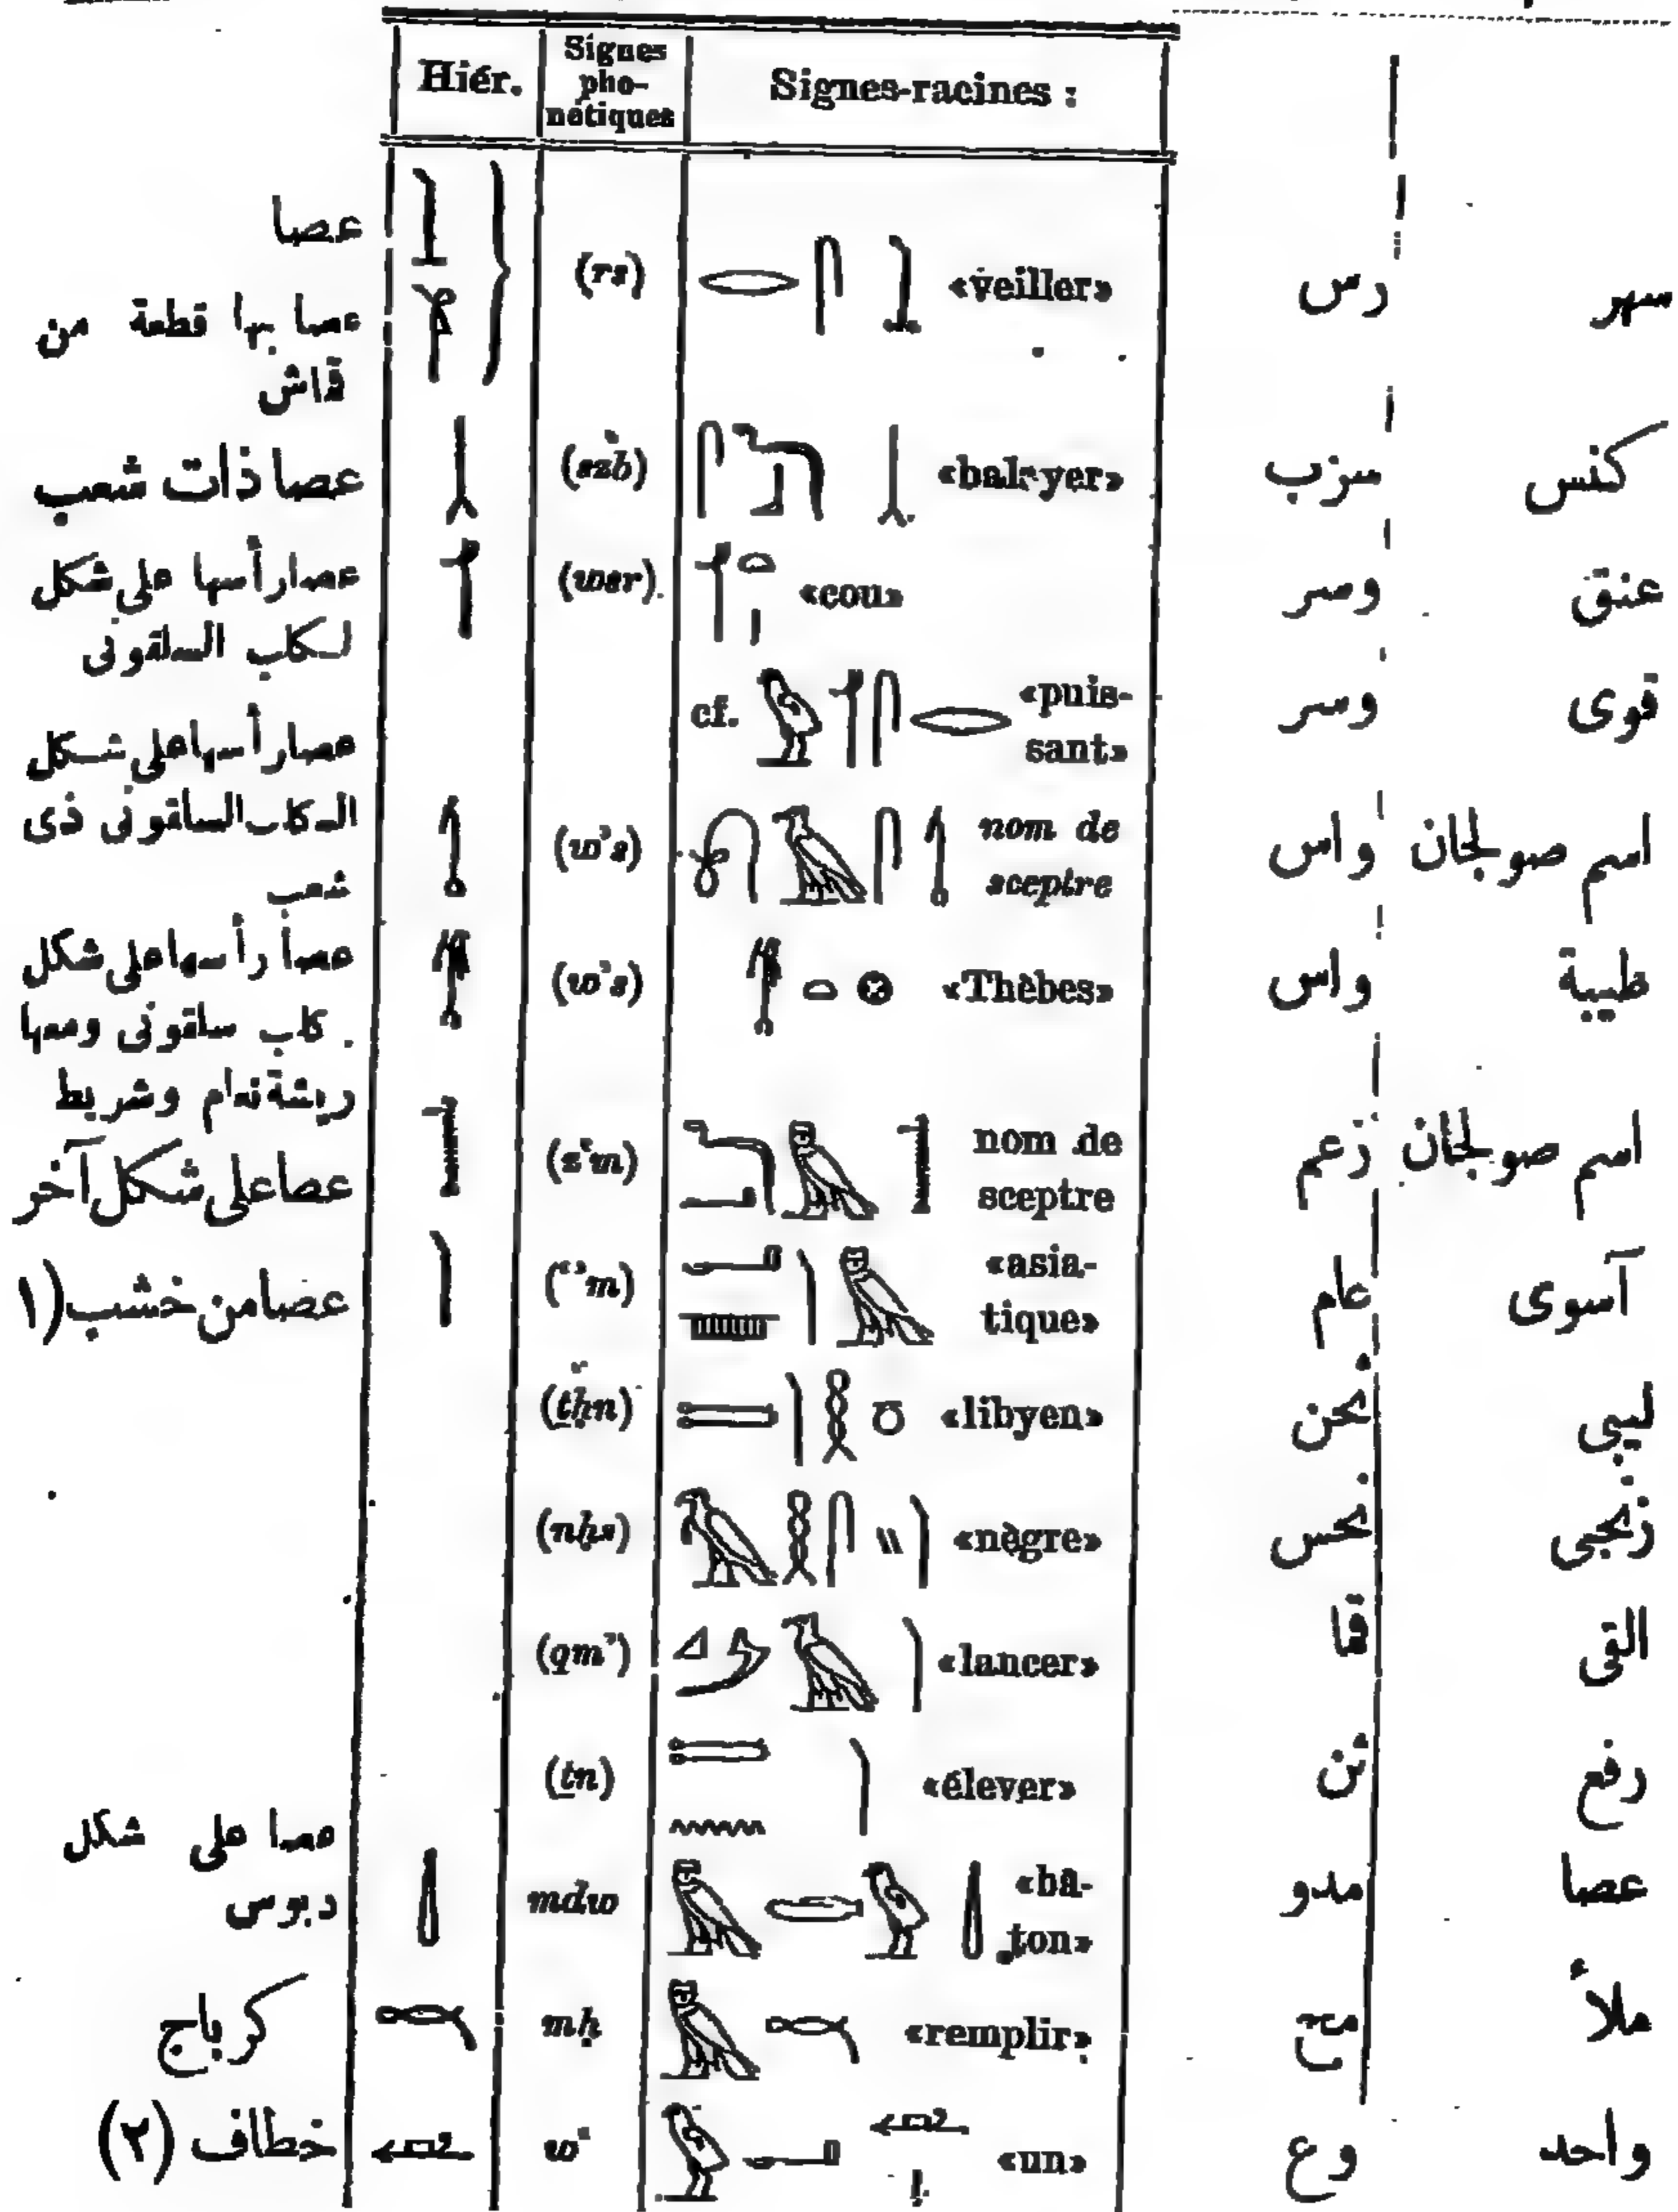 Hiér. | Signes phonétiques | Signes-racines :
عصا
عصا بها قطعة من
قماش
(rs) «veiller» رس سهر
عصا ذات شعب (szb) «balayer» سزب كنس
عصا رأسها على شكل
الكلب السلقونى
(wsr) «cou» وسر عنق
cf. «puis-
sant» وسر قوى
عصا رأسها على شكل
الكلب السلقونى ذى
شعب
(w's) nom de
sceptre واس اسم صولجان
عصا رأسها على شكل
كلب سلقونى ومعها
ريشة نعام وشريط
(w's) «Thèbes» واس طيبة
عصا على شكل آخر (z'm) nom de
sceptre زعم اسم صولجان
عصا من خشب (١ (‘’m) «asia-
tique» عام آسوى
(ṯḥn) «libyen» ثحن ليبى
(nḥs) «nègre» نحس زنجى
(qm’) «lancer» قا القى
(ṯn) «élever» ثن رفع
عصا على شكل
دبوس
mdw «bâ-
ton» مدو عصا
كرباج mḥ «remplir» مح ملأ
خطاف (٢) w‘ «un» وع واحد